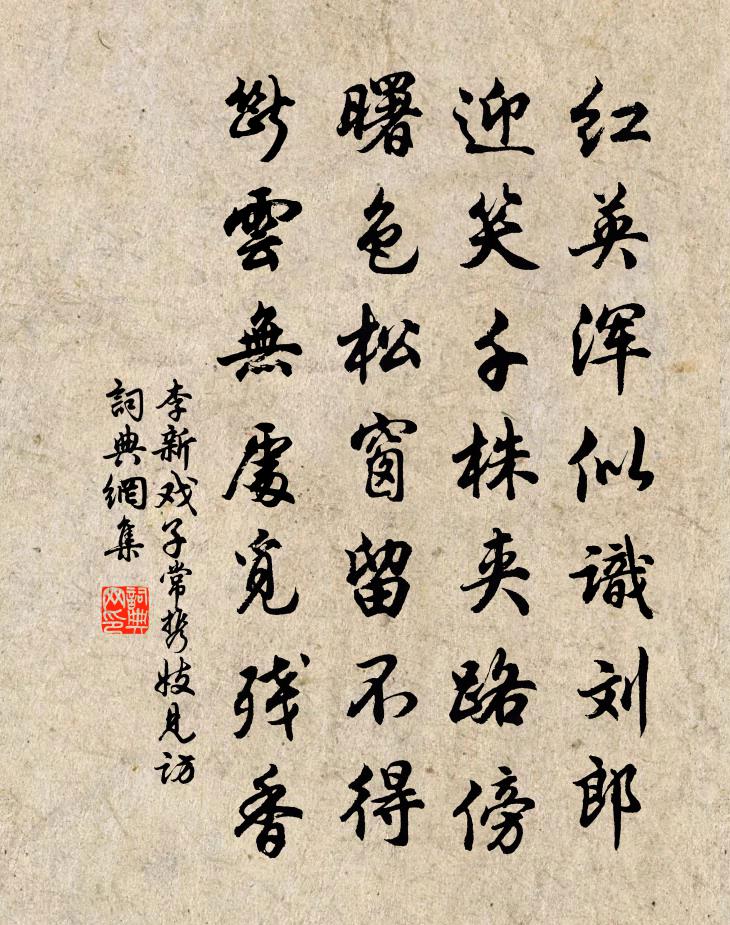 红英浑似識刘郎
迎笑千株夹路傍
曙色松窗留不得
断雲無處覓残香
李新戏子常携妓見访
詞典網集
詞典网印